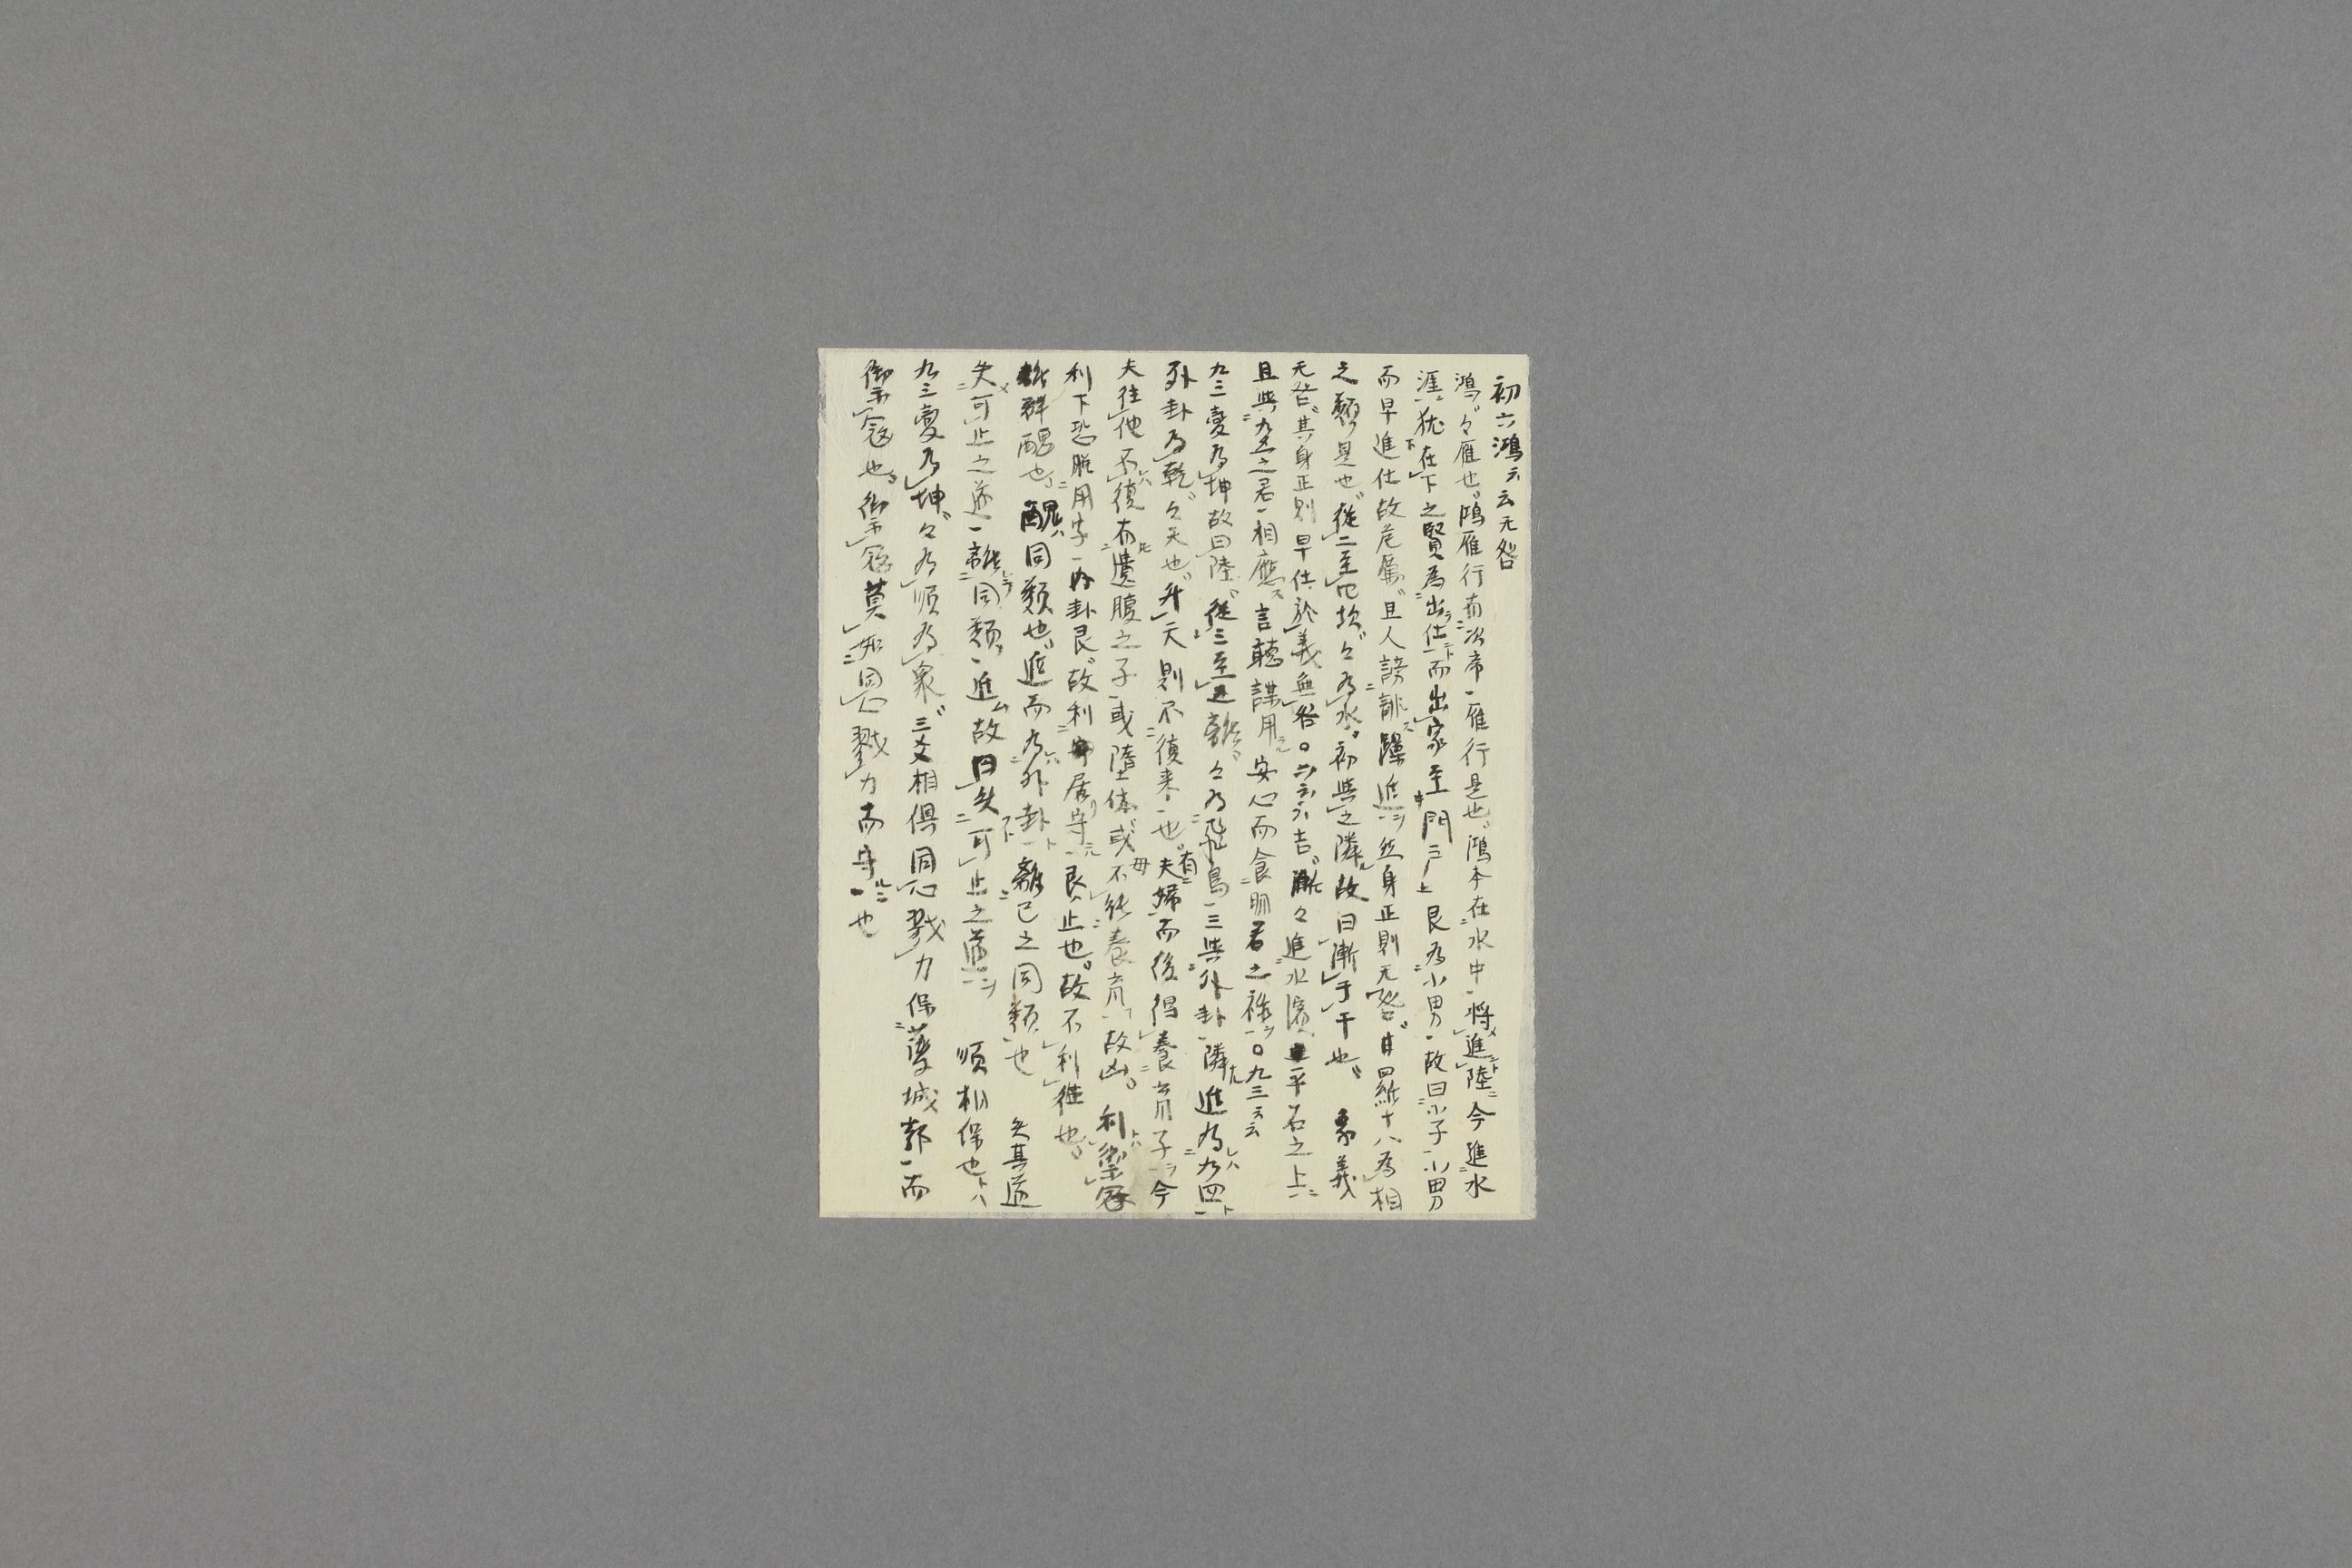 初六鴻云云无咎
鴻々雁也鴻雁行有次序一雁行是也鴻本在水中一将進陸今進水
涯犹在下之賢為出仕一而出家至門戸上艮為小男一故曰小子一小男
而早進仕故危厲且人謗誹躁進然身正則无咎甘羅十八為相
之類是也従二至四坎々為水初与之隣故曰漸于干也　象義
无咎其身正則早仕於義無咎〇六二云云吉漸々進水濱平石之上
且与九五之君一相應言聴謀用安心而食明君之禄〇九三云云
九三変為坤故曰陸従三至五離々為飛鳥一三与外卦一隣進為九四
外卦為乾々天也升天則不復来一也夫有婦而後得養育子今
夫往他不復有遺腹之子一或墮体或母不能養育一故凶　利禦寇
利下恐脱用字一内卦艮故利居守一艮止也故不利往也
離群醜也醜同類也進而為外卦一離己之同類也　失其道
失可止之道一離同類一進故曰失可止之道　順相保也
九三変為坤々為順為衆三爻相倶同心戮力保護城郭一而
禦寇也禦寇莫如同心戮力而守一也